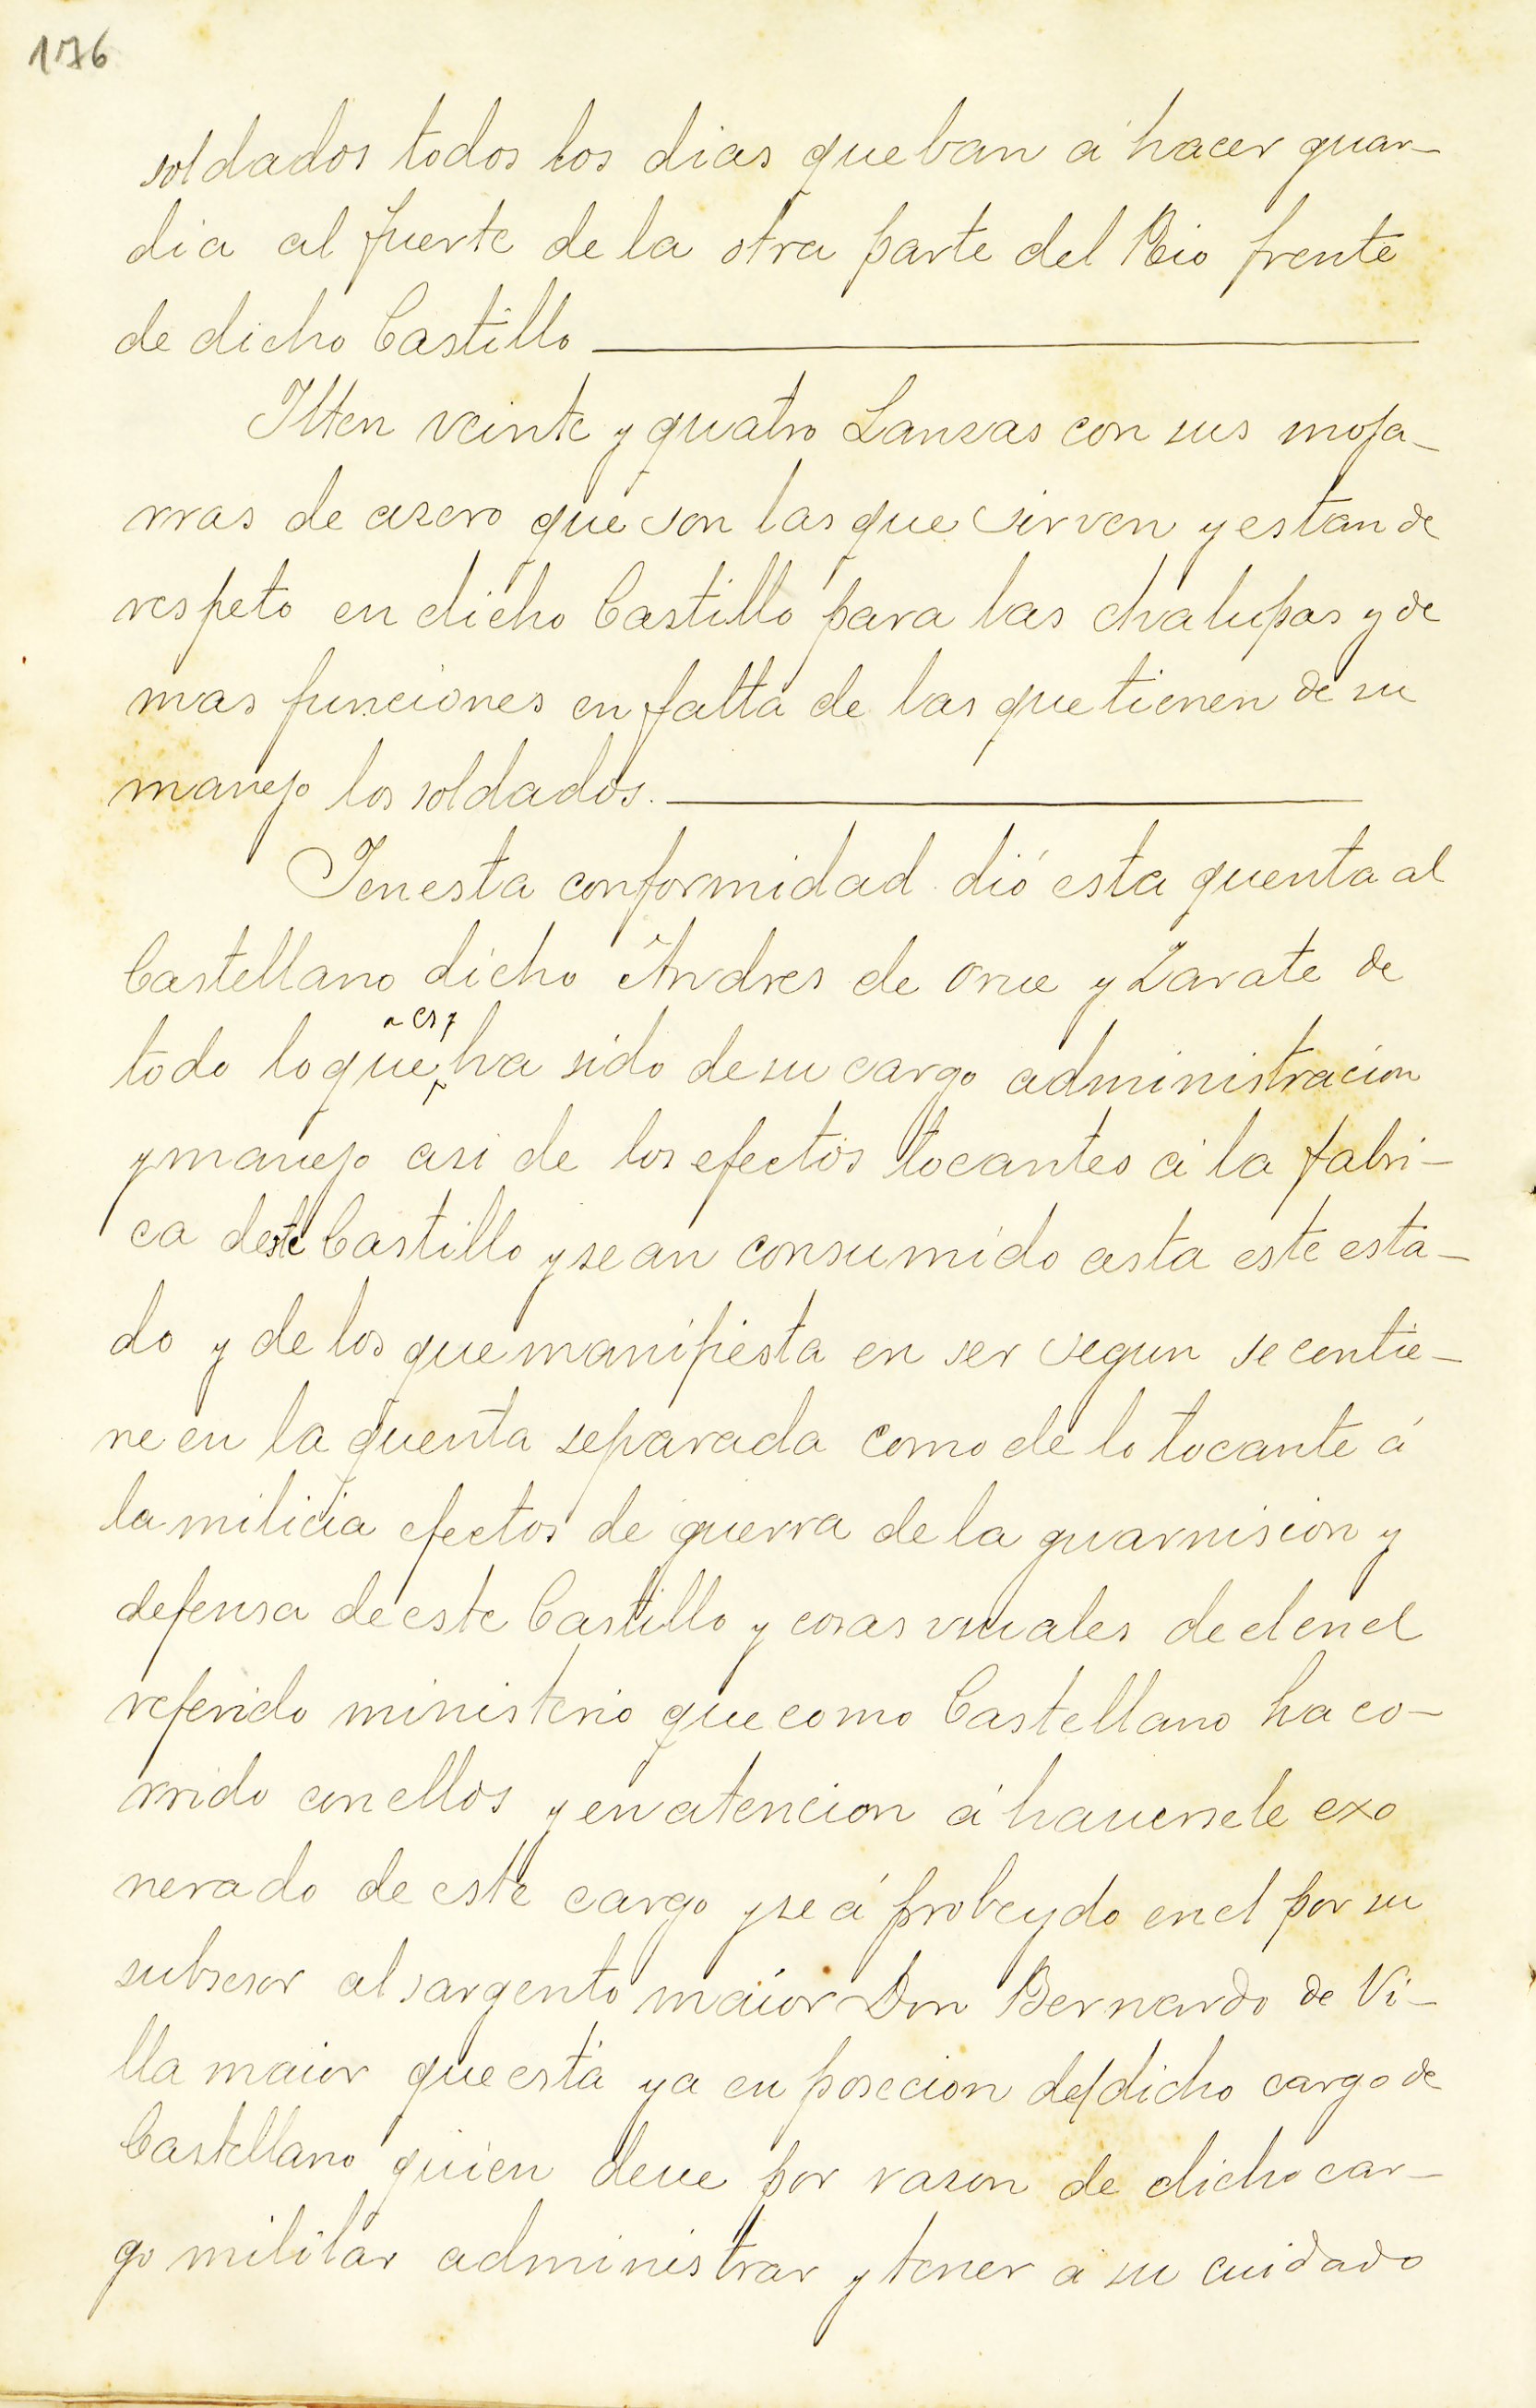 176
soldados todos los dias que ban á hacer guar-
dia al fuerte de la otra parte del Rio frente
de dicho Castillo
Itten veinte y quatro Lanzas con sus moja-
rras de azero que son las que sirven y estan de
respeto en dicho Castillo para las chalupas y de
mas funciones en falta de las que tienen de su
manejo los soldados.
I en esta conformidad dió esta quenta al
Castellano dicho Andres de Orue y Zarate de
todo lo que ha sido de su cargo administracion
y manejo asi de los efectos tocantes á la fabri-
ca deste Castillo y se an consumido asta este esta-
do y de los que manifiesta en ser segun se contie-
ne en la quenta separada como de lo tocante á
la milicia efectos de guerra de la guarnision y
defensa de este Castillo y cosas vsuales de el en el
referido ministerio que como Castellano ha co-
rrido con ellos y en atencion á hauersele exo
nerado de este cargo y se á probeydo en el por su
subsesor al sargento maior Don Bernardo de Vi-
lla maior que está ya en posecion del dicho cargo de
Castellano quien deue por razon de dicho car-
go militar administrar y tener á su cuidado